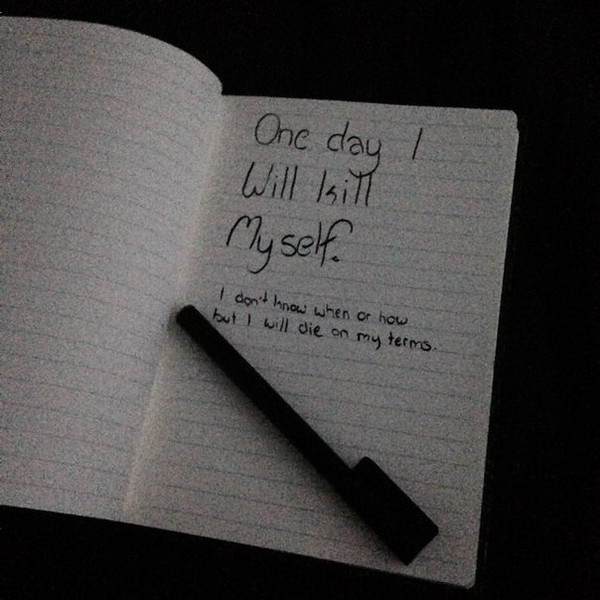 One day I
Will kill
Myself.
I don't know when or how
but I will die on my terms.